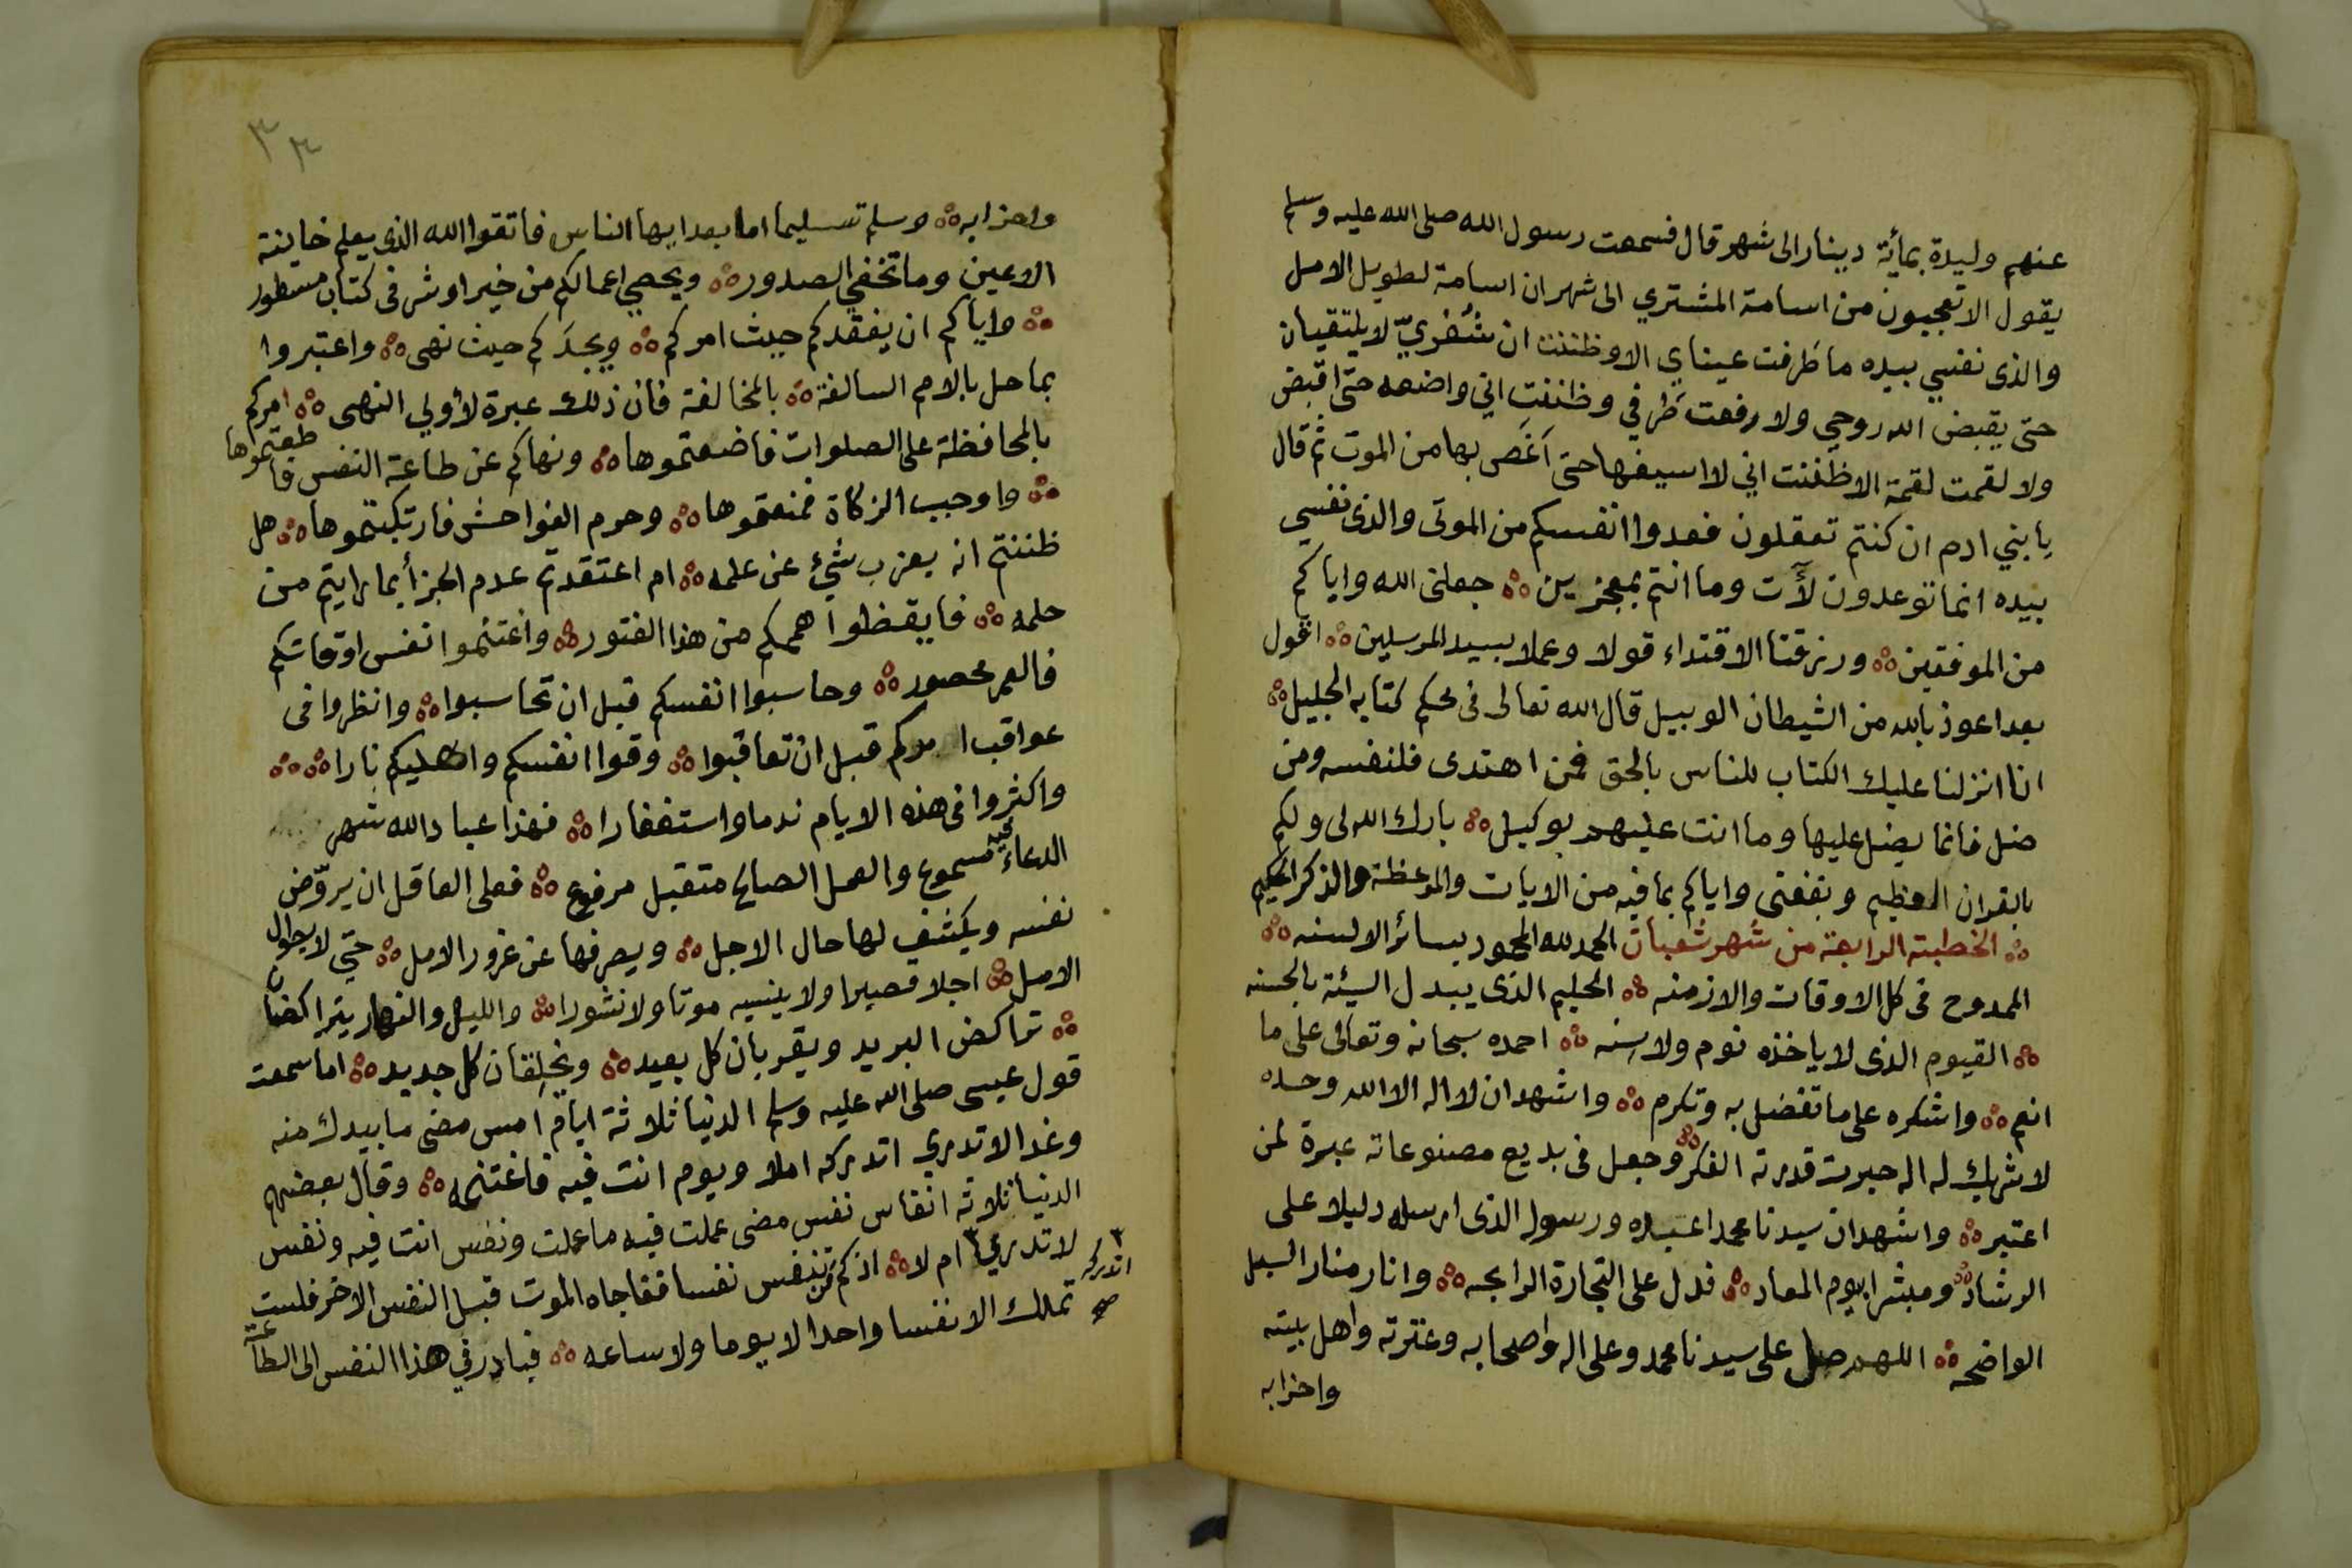 عنهم وليدة بمأية دينار الى شهر قال فسمعت رسول الله صلى الله عليه وسلم
يقول الا تعجبون من اسامة المشتري الى شهر ان اسامة لطويل الامل
والذى نفسي بيده ما طرفت عيناي الا وظننت ان شُفريّ لا يلتقيان
حتى يقبض الله روحي ولا رفعت طَرفي وظننت اني واضعه حتى اقبض
ولا لقمت لقمة الا ظننت اني لا اسيغها حتى اَغَص بها من الموت ثم قال
يا بني ادم ان كنتم تعقلون فعدوا انفسكم من الموتى والذى نفسي
بيده انما توعدون لأت وما انتم بمعجزين جعلنى الله واياكم
من الموفقين ورزقنا الاقتداء قولا وعملا بسيد المرسلين اقول
بعد اعوذ بالله من الشيطان الوبيل قال الله تعالى فى محكم كتابه الجليل
انا انزلنا عليك الكتاب للناس بالحق فمن اهتدى فلنفسه ومن
ضل فانما يضل عليها وما انت عليهم بوكيل بارك الله لى ولكم
بالقران العظيم ونفعنى واياكم بما فيه من الايات والموعظة والذكر الحكيم
الخطبته الرابعة من شهر شعبان الحمد لله المحمود بسائر الالسنه
الممدوح فى كل الاوقات والازمنه الحليم الذى يبدل السيئة بالحسنه
القيوم الذى لا ياخذه نوم ولا سنه احمده سبحانه وتعالى على ما
انعم واشكره على ما تفضل به وتكرم واشهد ان لا اله الا الله وحده
لا شريك له اله حيرت قدرته الفكر وجعل فى بديع مصنوعاته عبرة لمن
اعتبر واشهد ان سيدنا محمدا عبده ورسوله الذى ارسله دليلا على
الرشاد ومبشرا بيوم المعاد فدل على التجارة الرابحه وانار منار السبل
الواضحه اللهم صل على سيدنا محمد وعلى اله واصحابه وعترته واهل بيته
واحزابه
٣٣
واحزابه وسلم تسليما اما بعد ايها الناس فاتقوا الله الذى يعلم خاينة
الاعين وما تخفي الصدور ويحصي اعمالكم من خير او شر فى كتاب مسطور
واياكم ان يفقدكم حيث امركم ويجدَكم حيث نهى واعتبروا
بما حل بالامم السالفة بالمخالفة فان ذلك عبرة لأولي النهى امركم
بالمحافظة على الصلوات فاضعتموها ونهاكم عن طاعة النفس فاطعتموها
واوجب الزكاة فمنعتموها وحرم الفواحش فارتكبتموها هل
ظننتم انه يعزب شيء عن علمه ام اعتقدتم عدم الجزأ بما رايتم من
حلمه فايقظوا هممكم من هذا الفتور واغتنموا نفس اوقاتكم
فالعمر محصور وحاسبوا انفسكم قبل ان تحاسبوا وانظروا فى
عواقب امركم قبل ان تعاقبوا وقوا انفسكم واهليكم نارا
واكثروا فى هذه الايام ندما واستغفارا فهذا عباد الله شهر
الدعاء فيه مسموع والعمل الصالح متقبل مرفوع فعلى العاقل ان يروّض
نفسه ويكشف لها حال الاجل ويصرفها عن غرور الامل حتي لا يطول
الامل اجلا قصيرا ولا ينسيه موتا ولا نشورا والليل والنهار يتراكضان
تراكض البريد ويقربان كل بعيد ويخلِقان كل جديد اما سمعت
قول عيسى صلى الله عليه وسلم الدنيا ثلاثة ايام امس مضى ما بيدك منه
وغدا لا تدري اتدركه املا ويوم انت فيه فاغتنمه وقال بعضهم
الدنيا ثلاثه انفاس نفس مضى عملت فيه ما عملت ونفس انت فيه ونفس
لا تدري ٣ ام لا اذ كم من تنفس نفسا ففاجاه الموت قبل النفس الاخر فلست
تملك الا نفسا واحدا لا يوما ولا ساعه فبادر في هذا النفس الى الطاعة
٣ اتدركه صح